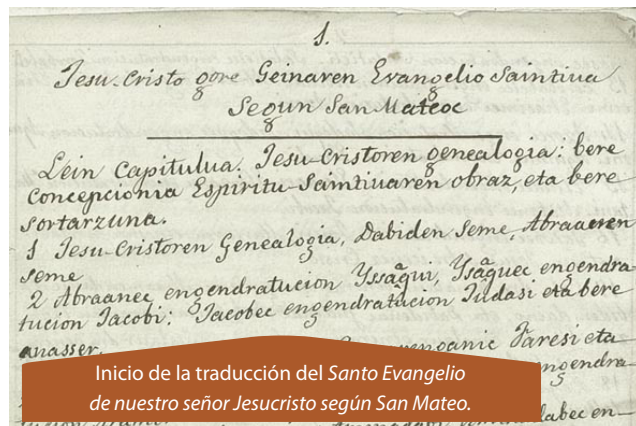 1.
Jesu-Cristo gore Geinaren Evangelio Saintiua
Segun San Mateoc
Lein Capitulua. Jesu-Cristoren genealogia: bere
Concepcionia Espiritu-Saintiuaren obraz, eta bere
sortarzuna.
1 Jesu-Cristoren Genealogia, Dabiden seme, Abraaren
seme
2 Abraanec engendratucion Yssaqui, Ysaquec engendra-
tucion Jacobi: Jacobec engendratucion Judasi eta bere
anasser.
Faresi eta
engendra-
Inicio de la traducción del Santo Evangelio
de nuestro señor Jesucristo según San Mateo.
en-